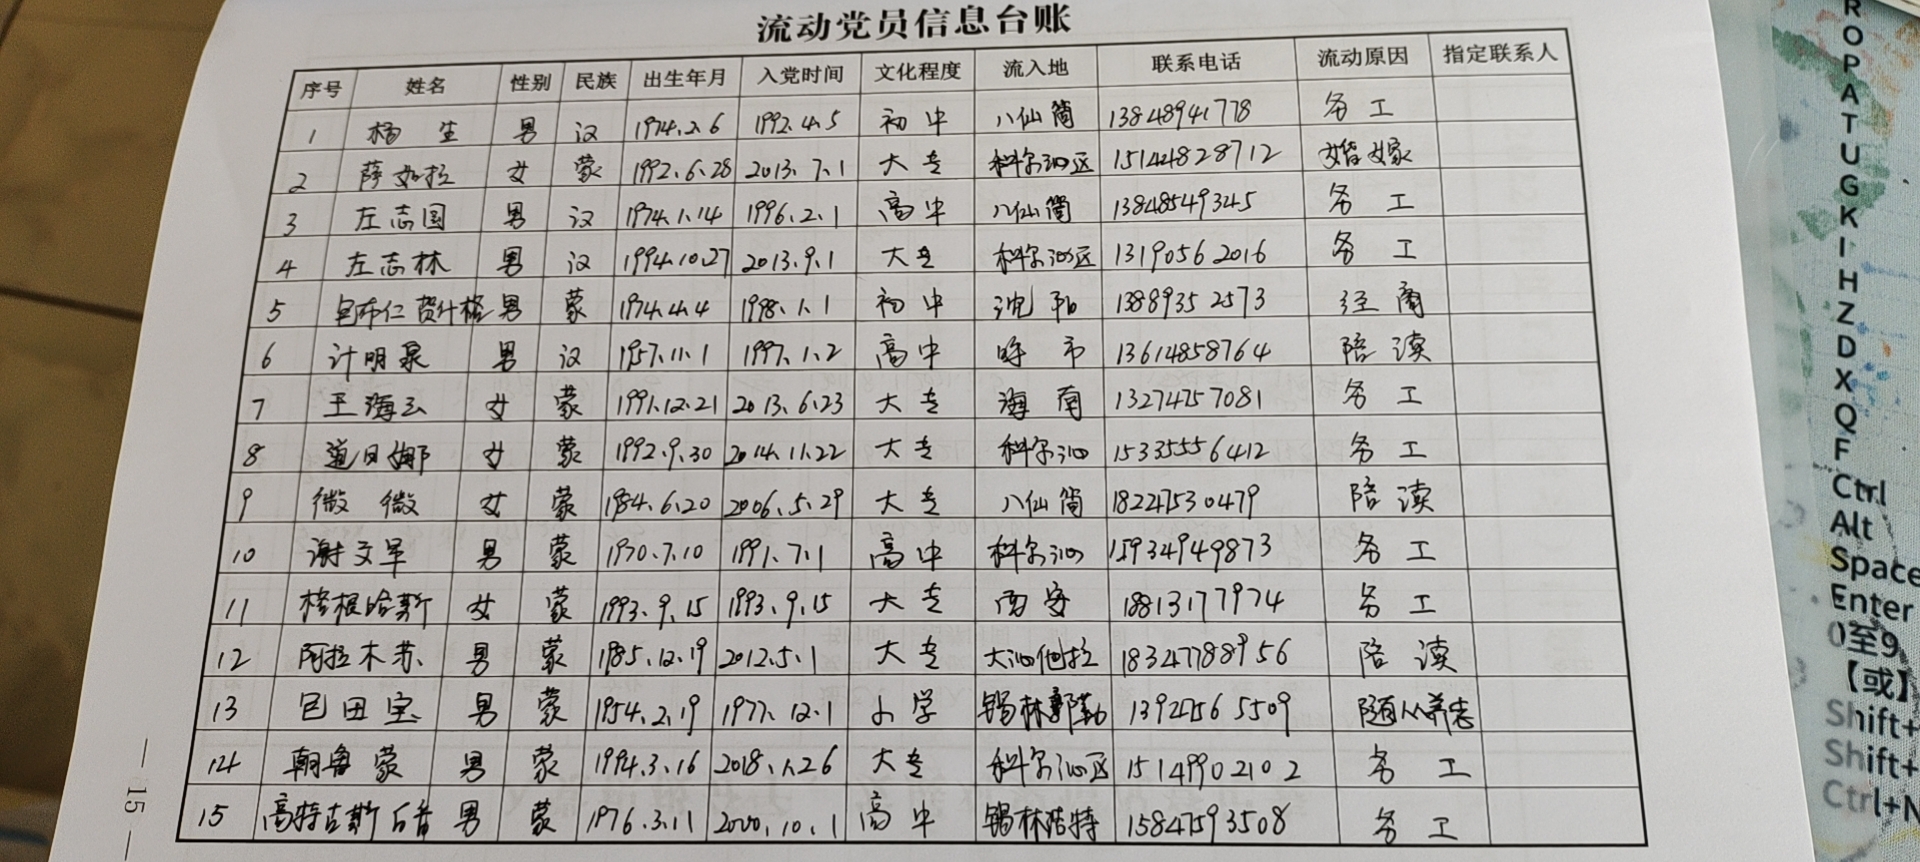 流动党员信息台账
序号 姓名 性别 民族 出生年月 入党时间 文化程度 流入地 联系电话 流动原因 指定联系人
1 杨生 男 汉 1974.2.6 1992.4.5 初中 八仙筒 13848941778 务工
2 萨如拉 女 蒙 1992.6.28 2013.7.1 大专 科尔沁区 15144828712 婚嫁
3 左志国 男 汉 1974.1.14 1996.2.1 高中 八仙筒 13848549345 务工
4 左志林 男 汉 1994.10.27 2013.9.1 大专 科尔沁区 13190562016 务工
5 包布仁贺什格 男 蒙 1974.4.4 1998.1.1 初中 沈阳 13889352573 经商
6 计明 男 汉 1957.11.1 1997.1.2 高中 市 13614858764 陪读
7 王海玉 女 蒙 1991.12.21 2013.6.23 大专 海南 13274757081 务工
8 道日娜 女 蒙 1992.9.30 2014.11.22 大专 科尔沁 15335556412 务工
9 微微 女 蒙 1984.6.20 2006.5.29 大专 八仙筒 182247530479 陪读
10 谢文军 男 蒙 1970.7.10 1991.7.1 高中 科尔沁 15934949873 务工
11 格根哈斯 女 蒙 1993.9.15 1993.9.15 大专 西安 18813177974 务工
12 阿拉木苏 男 蒙 1985.12.19 2012.5.1 大专 大沁他拉 18347788956 陪读
13 包田宝 男 蒙 1954.2.19 1977.12.1 小学 锡林郭勒 13947565509 随人养老
14 朝鲁蒙 男 蒙 1994.3.16 2018.1.26 大专 科尔沁区 15149902102 务工
15 高特古斯 男 蒙 1976.3.11 2000.10.1 高中 锡林浩特 15847593508 务工
— 15 —
R
O
P
A
T
U
G
K
I
H
Z
D
X
Q
F
Ctrl
Alt
Space
Enter
0至9
【或】
Shift+
Shift+
Ctrl+N